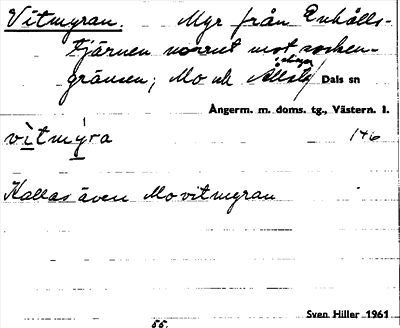 Vitmyran. Myr från Enhålls-
tjärnen norrut mot socken-
gränsen; Mo och Allsta Dals sn
Ångerm. m. doms. tg., Västern. l.
vitmyra 146
Kallas även Movitmyran
Sven Hiller 1961
55.